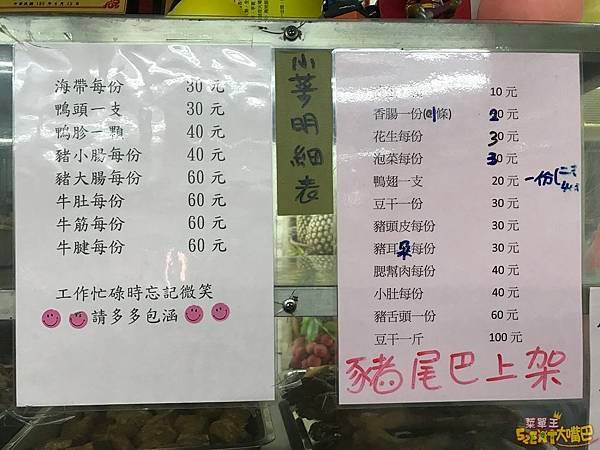 海帶每份 30 元
鴨頭一支 30 元
鴨胗一顆 40 元
豬小腸每份 40 元
豬大腸每份 60 元
牛肚每份 60 元
牛筋每份 60 元
牛腱每份 60 元
工作忙碌時忘記微笑
請多多包涵
小菜明細表
10 元
香腸一份(1條) 20 元
花生每份 30 元
泡菜每份 30 元
鴨翅一支 20 元 一份
豆干一份 30 元
豬頭皮每份 30 元
豬耳朵每份 30 元
腮幫肉每份 40 元
小肚每份 40 元
豬舌頭一份 60 元
豆干一斤 100 元
豬尾巴上架
菜單王
523EAT大嘴巴